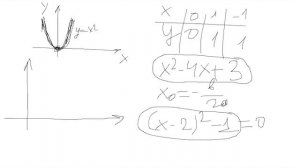 y
y=x²
x
x 0 1 -1
y 0 1 1
x²-4x+3
x₀=-b/2a
(x-2)²-1=0